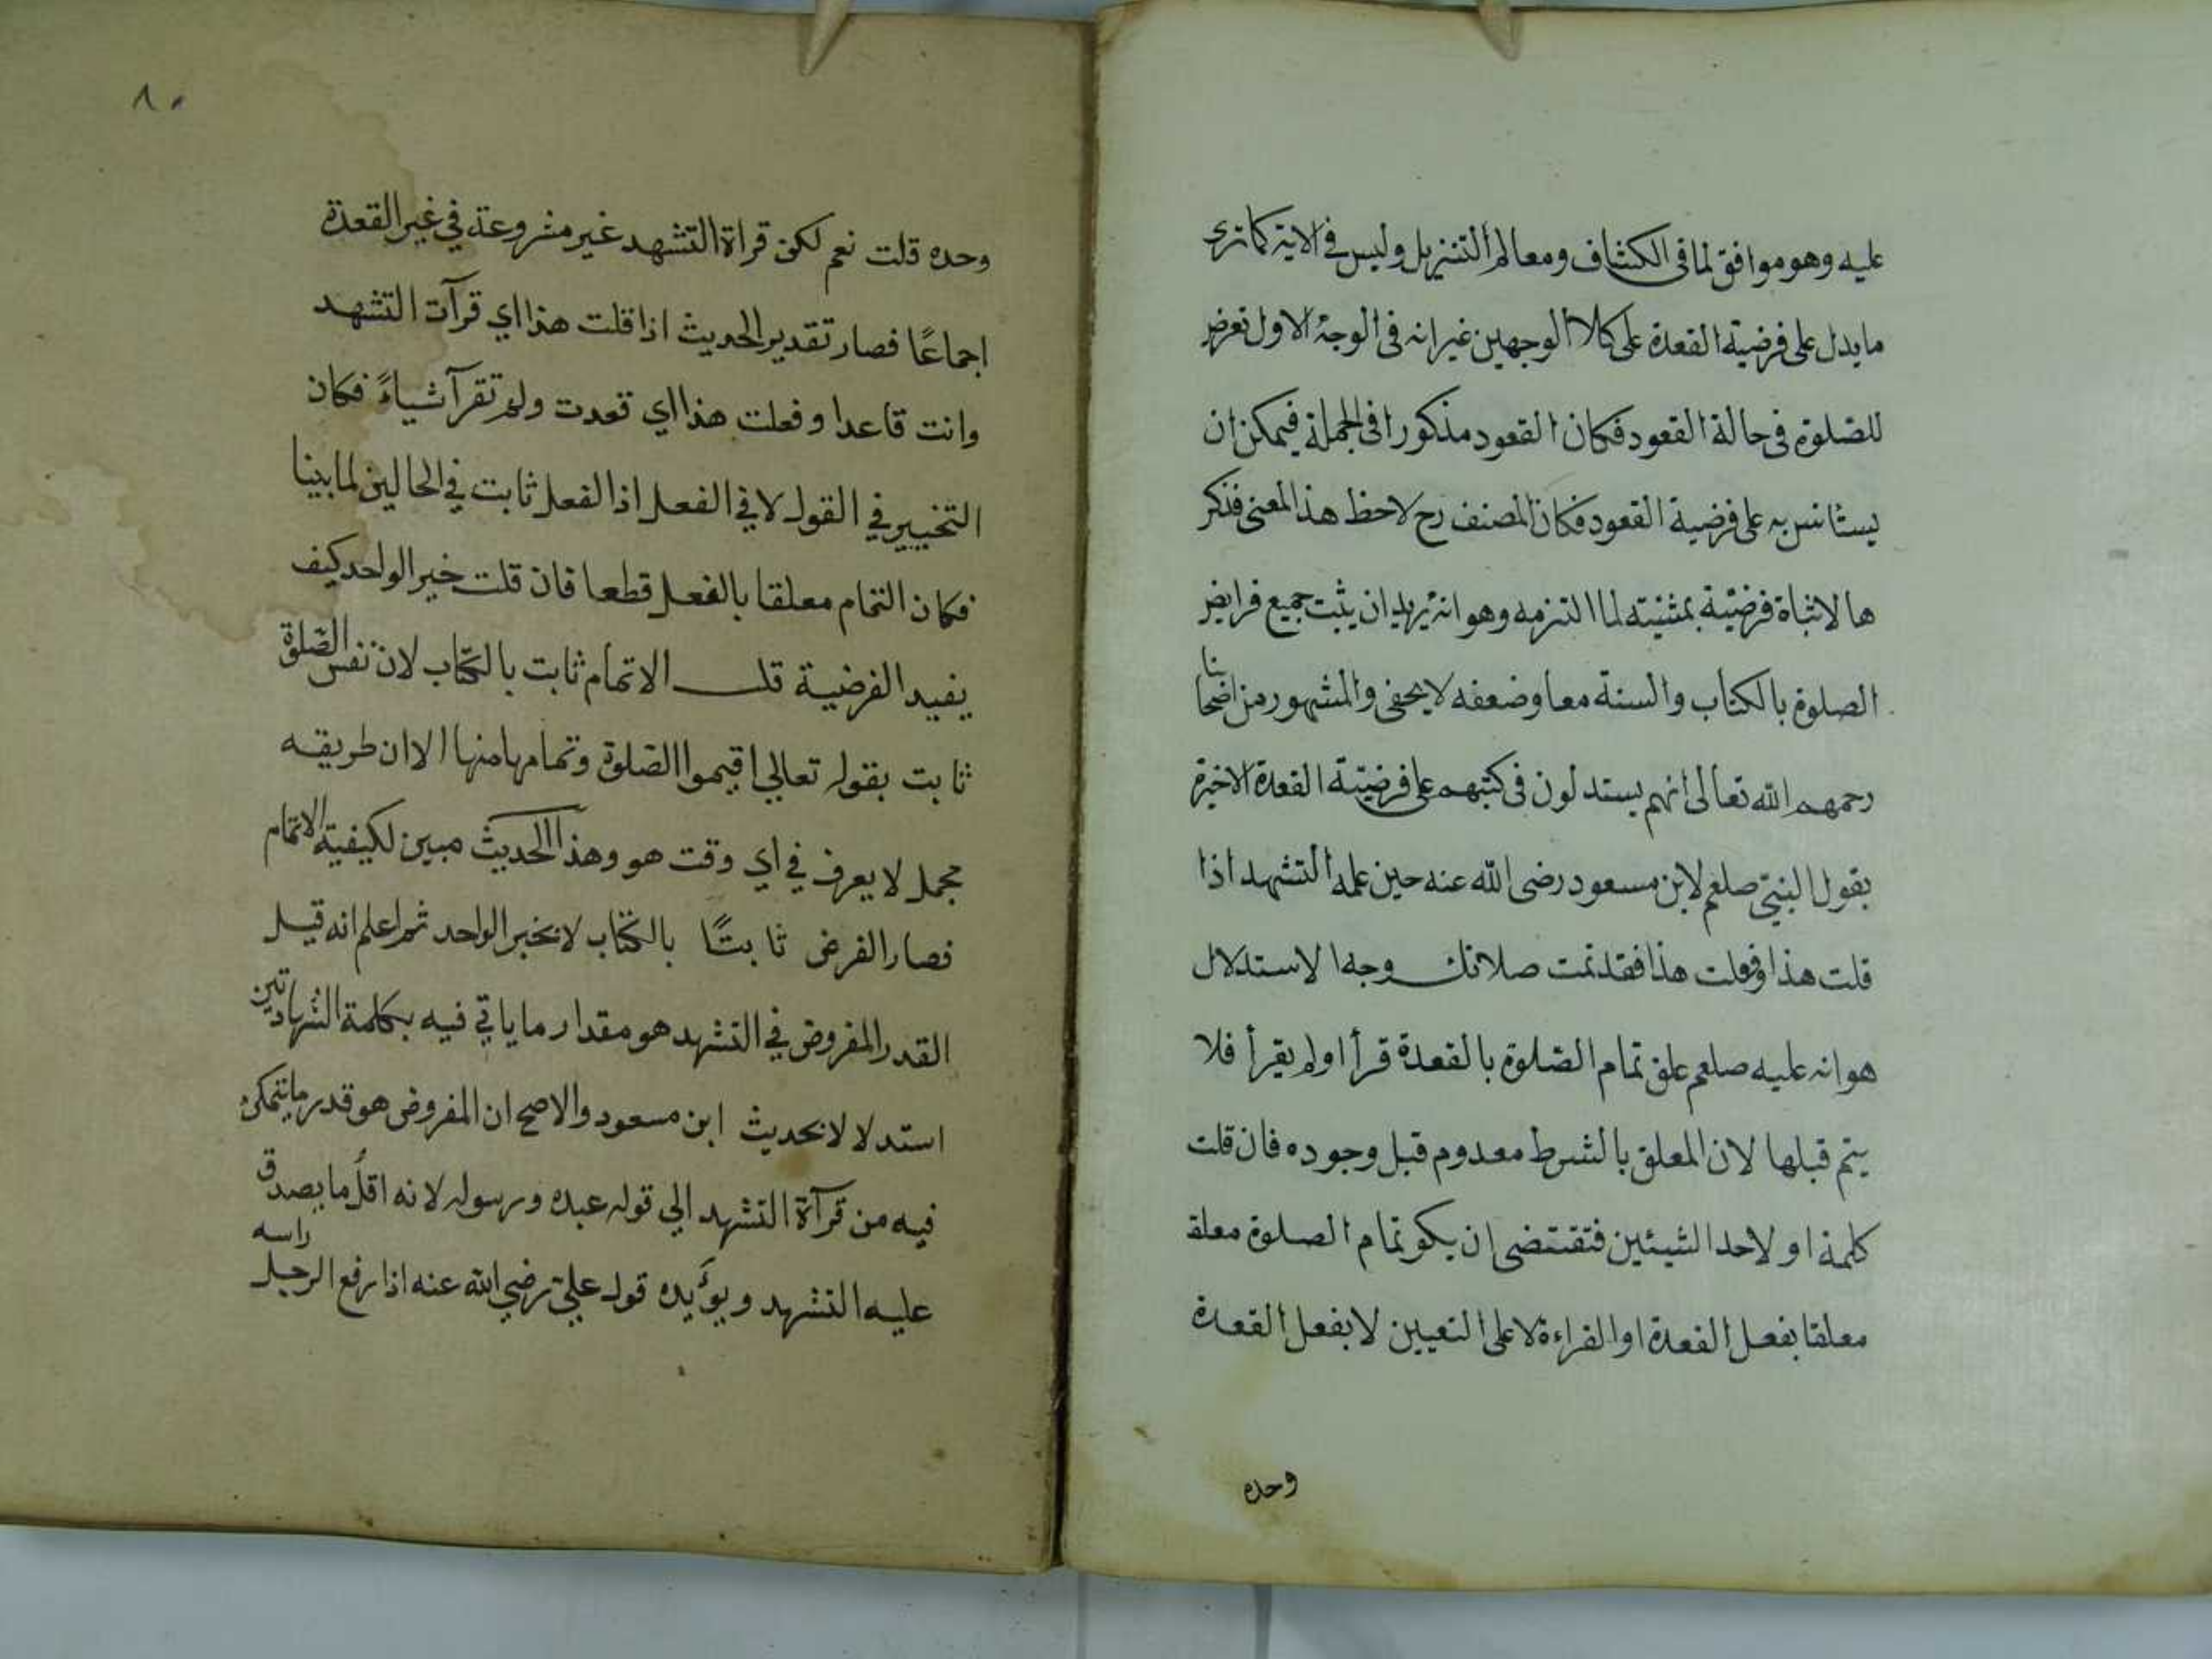 عليه وهو موافق لما في الكشاف ومعالم التنزيل وليس في الاية كما ترى
ما يدل على فرضية القعدة على كلا الوجهين غير انه في الوجه الاول تعرض
للصلوة في حالة القعود فكان القعود مذكورا في الجملة فيمكن ان
يستانس به على فرضية القعود فكان المصنف رح لاحظ هذا المعنى فذكر
ها لاثباة فرضيّة بمثنيته لما التزمه وهو انه يريد ان يثبت جميع فرايض
الصلوة بالكتاب والسنة معا وضعفه لا يخفى والمشهور من اصحابنا
رحمهم الله تعالى انهم يستدلون في كتبهم على فرضيّة القعدة الاخيرة
بقول النبيّ صلعم لابن مسعود رضى الله عنه حين علمه التشهد اذا
قلت هذا او فعلت هذا فقد تمت صلاتك وجه الاستدلال
هو انه عليه صلعم علق تمام الصّلوة بالقعدة قرأ او لم يقرأ فلا
يتم قبلها لان المعلق بالشرط معدوم قبل وجوده فان قلت
كلمة او لاحد الشيئين فتقتضى ان يكو تمام الصلوة معلقا
معلقا بفعل القعدة او القراءة لا على التعيين لا بفعل القعدة
وحده
٨٠
وحده قلت نعم لكن قراة التشهد غير مشروعة في غير القعدة
اجماعًا فصار تقدير الحديث اذا قلت هذا اي قرآت التشهد
وانت قاعدا وفعلت هذا اي قعدت ولم تقرآ شياءً فكان
التخيير في القول لا في الفعل اذ الفعل ثابت في الحالين لما بينا
فكان التمام معلقا بالفعل قطعا فان قلت خبر الواحد كيف
يفيد الفرضية قلت الاتمام ثابت بالكتاب لان نفس الصّلوة
ثابت بقوله تعالي اقيموا الصّلوة وتمامها منها الا ان طريقه
مجمل لا يعرف في اي وقت هو وهذا الحديث مبين لكيفية الاتمام
فصار الفرض ثابتًا بالكتاب لا بخبر الواحد ثم اعلم انه قيل
القدر المفروض في التشهد هو مقدار ما ياتي فيه بكلمة الشهادتين
استدلالا بحديث ابن مسعود والاصح ان المفروض هو قدر ما يتمكن
فيه من قرآة التشهد الي قوله عبده ورسوله لانه اقلّ ما يصدق
عليه التشهد ويؤيده قول عليّ رضي الله عنه اذا رفع الرجل راسه